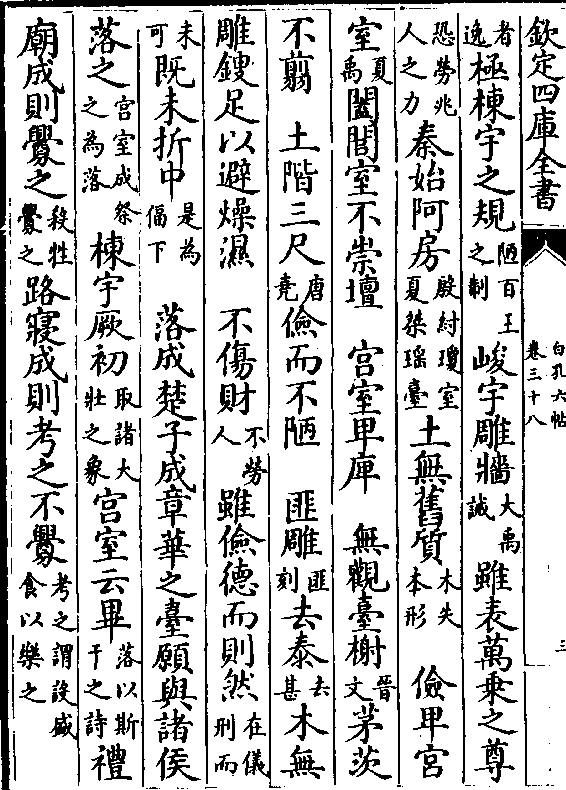 欽定四庫全書
白孔六帖
卷三十八
三
者逸極棟宇之規陋百王之制 峻宇雕牆大禹誡雖表萬乘之尊
恐勞兆人之力秦始阿房殷紂瓊室夏桀瑶臺土無舊質木失本形 儉卑宮
室夏禹闔閭室不崇壇 宮室卑庳 無觀臺榭晉文茅茨
不翦 土階三尺唐堯儉而不陋 匪雕匪刻去泰去甚木無
雕鎪足以避燥濕 不傷財不勞人雖儉德而則然在儀刑而
未可既未折中是為偪下 落成楚子成章華之臺願與諸侯
落之宮室成祭之為落棟宇厥初取諸大壯之象宮室云畢落以斯干之詩禮
廟成則釁之殺牲釁之路寢成則考之不釁考之謂設盛食以樂之